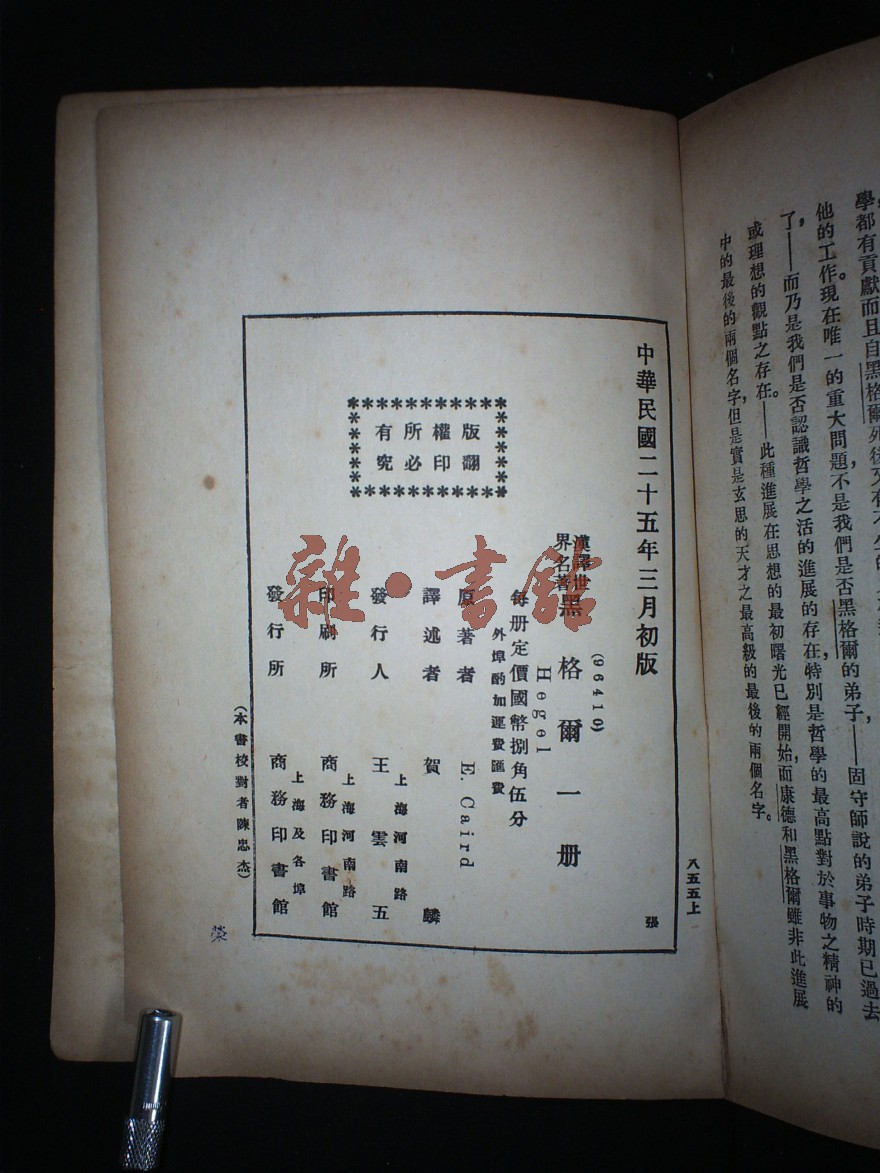 學都有貢獻而且自黑格爾死後又有不
他的工作。現在唯一的重大問題，不是我們是否黑格爾的弟子——固守師說的弟子時期已過去
了，——而乃是我們是否認識哲學之活的進展的存在，特別是哲學的最高點對於事物之精神的
或理想的觀點之存在。——此種進展在思想的最初曙光已經開始，而康德和黑格爾雖非此進展
中的最後的兩個名字，但是實是玄思的天才之最高級的最後的兩個名字。
八五五上
中華民國二十五年三月初版
張
(96410)
漢譯世
界名著
黑格爾一册
Hegel
每册定價國幣捌角伍分
外埠酌加運費匯費
原著者 E. Caird
譯述者 賀麟
發行人 王雲五
上海河南路
印刷所 商務印書館
上海河南路
發行所 商務印書館
上海及各埠
版權所有
翻印必究
(本書校對者陳忠杰)
荣
雜·書館